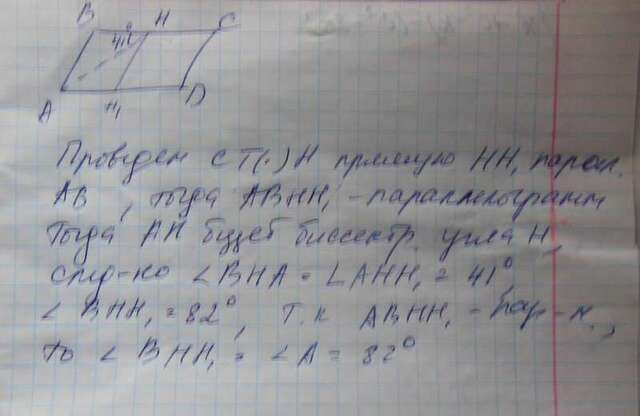 B H C
41°
A H₁ D
Проведём с т(·) H прямую HH₁ парал.
AB, тогда ABHH₁ - параллелограмм
Тогда AH будет биссектр. угла H,
след-но ∠BHA = ∠AHH₁ = 41°
∠BHH₁ = 82°, т.к ABHH₁ - пар-м.,
то ∠BHH₁ = ∠A = 82°